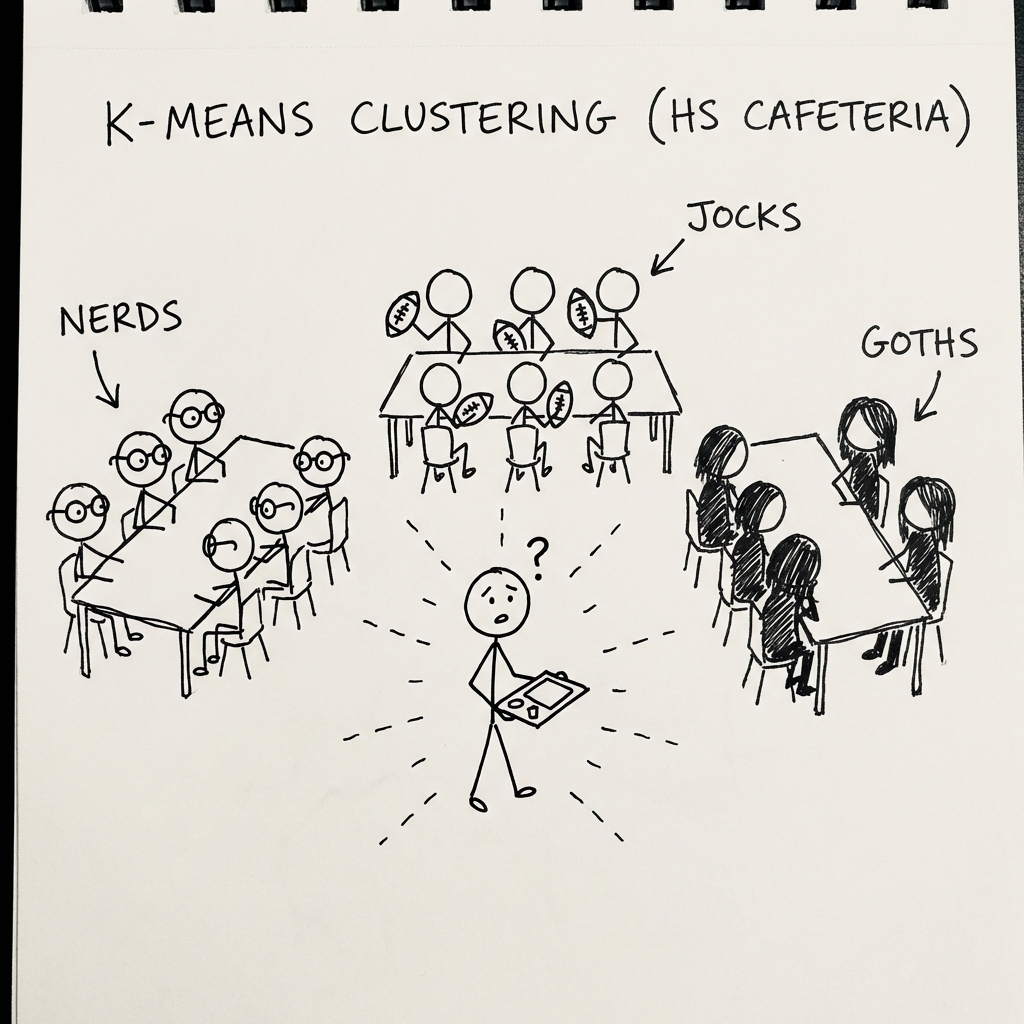 K-MEANS CLUSTERING (HS CAFETERIA)
JOCKS
NERDS
GOTHS
?